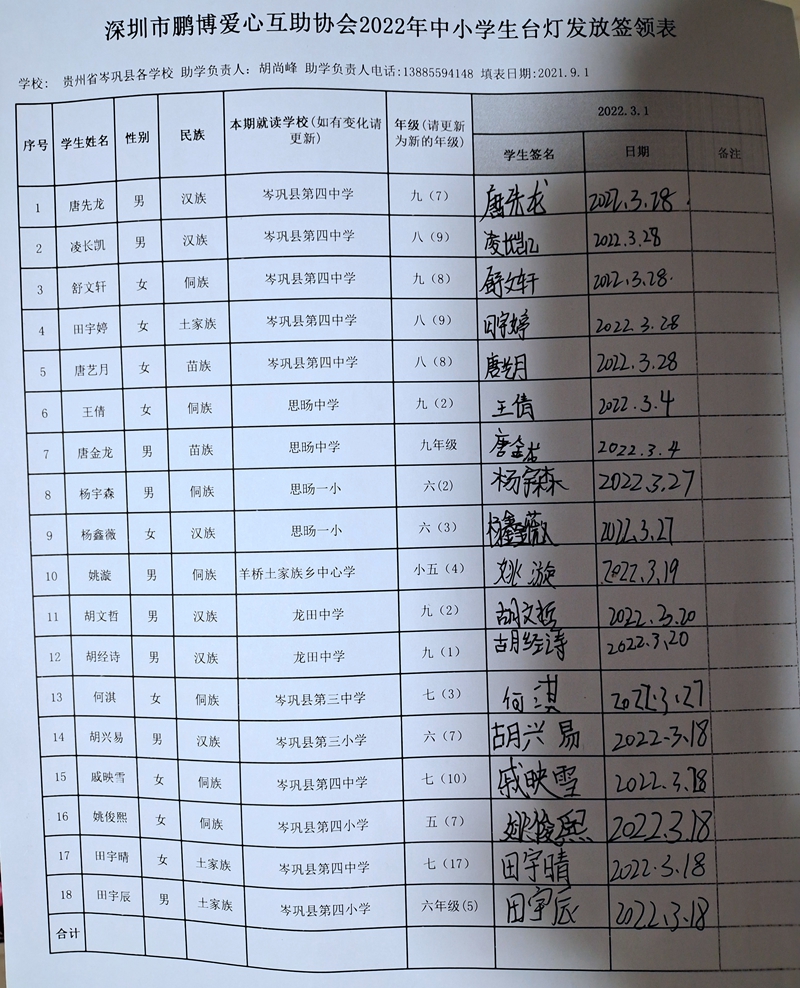 深圳市鹏博爱心互助协会2022年中小学生台灯发放签领表
学校: 贵州省岑巩县各学校 助学负责人: 胡尚峰 助学负责人电话:13885594148 填表日期:2021.9.1
序号 学生姓名 性别 民族 本期就读学校(如有变化请更新) 年级(请更新为新的年级) 2022.3.1
学生签名 日期 备注
1 唐先龙 男 汉族 岑巩县第四中学 九（7） 唐先龙 2022.3.28.
2 凌长凯 男 汉族 岑巩县第四中学 八（9） 凌长凯 2022.3.28
3 舒文轩 女 侗族 岑巩县第四中学 九（8） 舒文轩 2022.3.28.
4 田宇婷 女 土家族 岑巩县第四中学 八（9） 田宇婷 2022.3.28
5 唐艺月 女 苗族 岑巩县第四中学 八（8） 唐艺月 2022.3.28
6 王倩 女 侗族 思旸中学 九（2） 王倩 2022.3.4
7 唐金龙 男 苗族 思旸中学 九年级 唐金龙 2022.3.4
8 杨宇森 男 侗族 思旸一小 六(2) 杨宇森 2022.3.27
9 杨鑫薇 女 汉族 思旸一小 六（3） 杨鑫薇 2022.3.27
10 姚漩 男 侗族 羊桥土家族乡中心学 小五（4） 姚漩 2022.3.19
11 胡文哲 男 汉族 龙田中学 九（2） 胡文哲 2022.3.20
12 胡经诗 男 汉族 龙田中学 九（1） 胡经诗 2022.3.20
13 何淇 女 侗族 岑巩县第三中学 七（3） 何淇 2022.3.27
14 胡兴易 男 汉族 岑巩县第三小学 六（7） 胡兴易 2022.3.18
15 戚映雪 女 侗族 岑巩县第四中学 七（10） 戚映雪 2022.3.18
16 姚俊熙 女 侗族 岑巩县第四小学 五（7） 姚俊熙 2022.3.18
17 田宇晴 女 土家族 岑巩县第四中学 七（17） 田宇晴 2022.3.18
18 田宇辰 男 土家族 岑巩县第四小学 六年级(5) 田宇辰 2022.3.18
合计